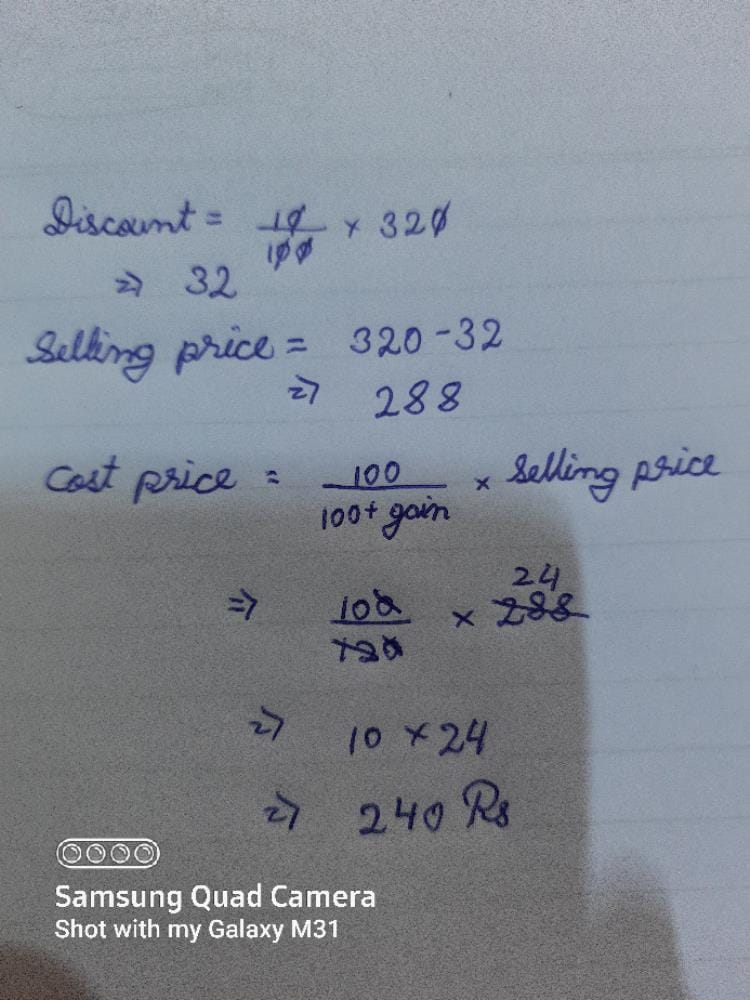 Discount = 10/100 × 320
⇒ 32
Selling price = 320 - 32
⇒ 288
Cost price = 100/100+gain × Selling price
⇒ 100/120 × 288 24
⇒ 10 × 24
⇒ 240 Rs
Samsung Quad Camera
Shot with my Galaxy M31